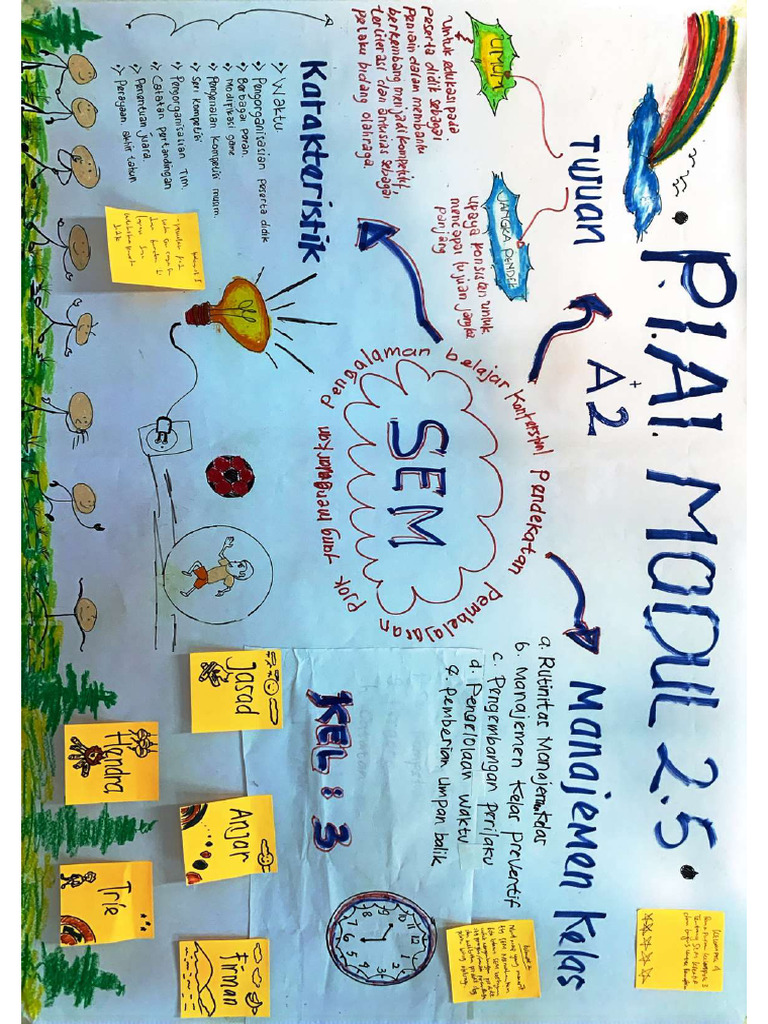 • P.I.A.I. MODUL 2.5 •
A2
+
Tujuan
UMUM
Untuk edukasi pada
peserta didik sebagai
pemain dalam membantu
berkembang menjadi kompetitif,
terliterasi dan antusias sebagai
pelaku bidang olahraga.
JANGKA PENDEK
upaya konsisten untuk
mencapai tujuan jangka
panjang
Katakteristik
Waktu
Pengorganisasian peserta didik
Berbagai peran.
Modifikasi game
Pengenalan kompetisi musim.
Seri kompetisi
Pengorganisasian Tim
Catatan pertandingan
Penentuan juara.
Perayaan akhir tahun
SEM
Pendekatan Pembelajaran
PJOK yang menawarkan
Pengalaman belajar kontekstual
Manajemen Kelas
a. Rutinitas Manajemen Kelas
b. Manajemen Kelas Preventif
c. Pengembangan perilaku
d. Pengelolaan waktu
e. Pemberian Umpan balik
KEL : 3
Jasad
Hendra
Anjar
Trie
Firman
12
1
2
3
4
5
6
7
8
9
10
11